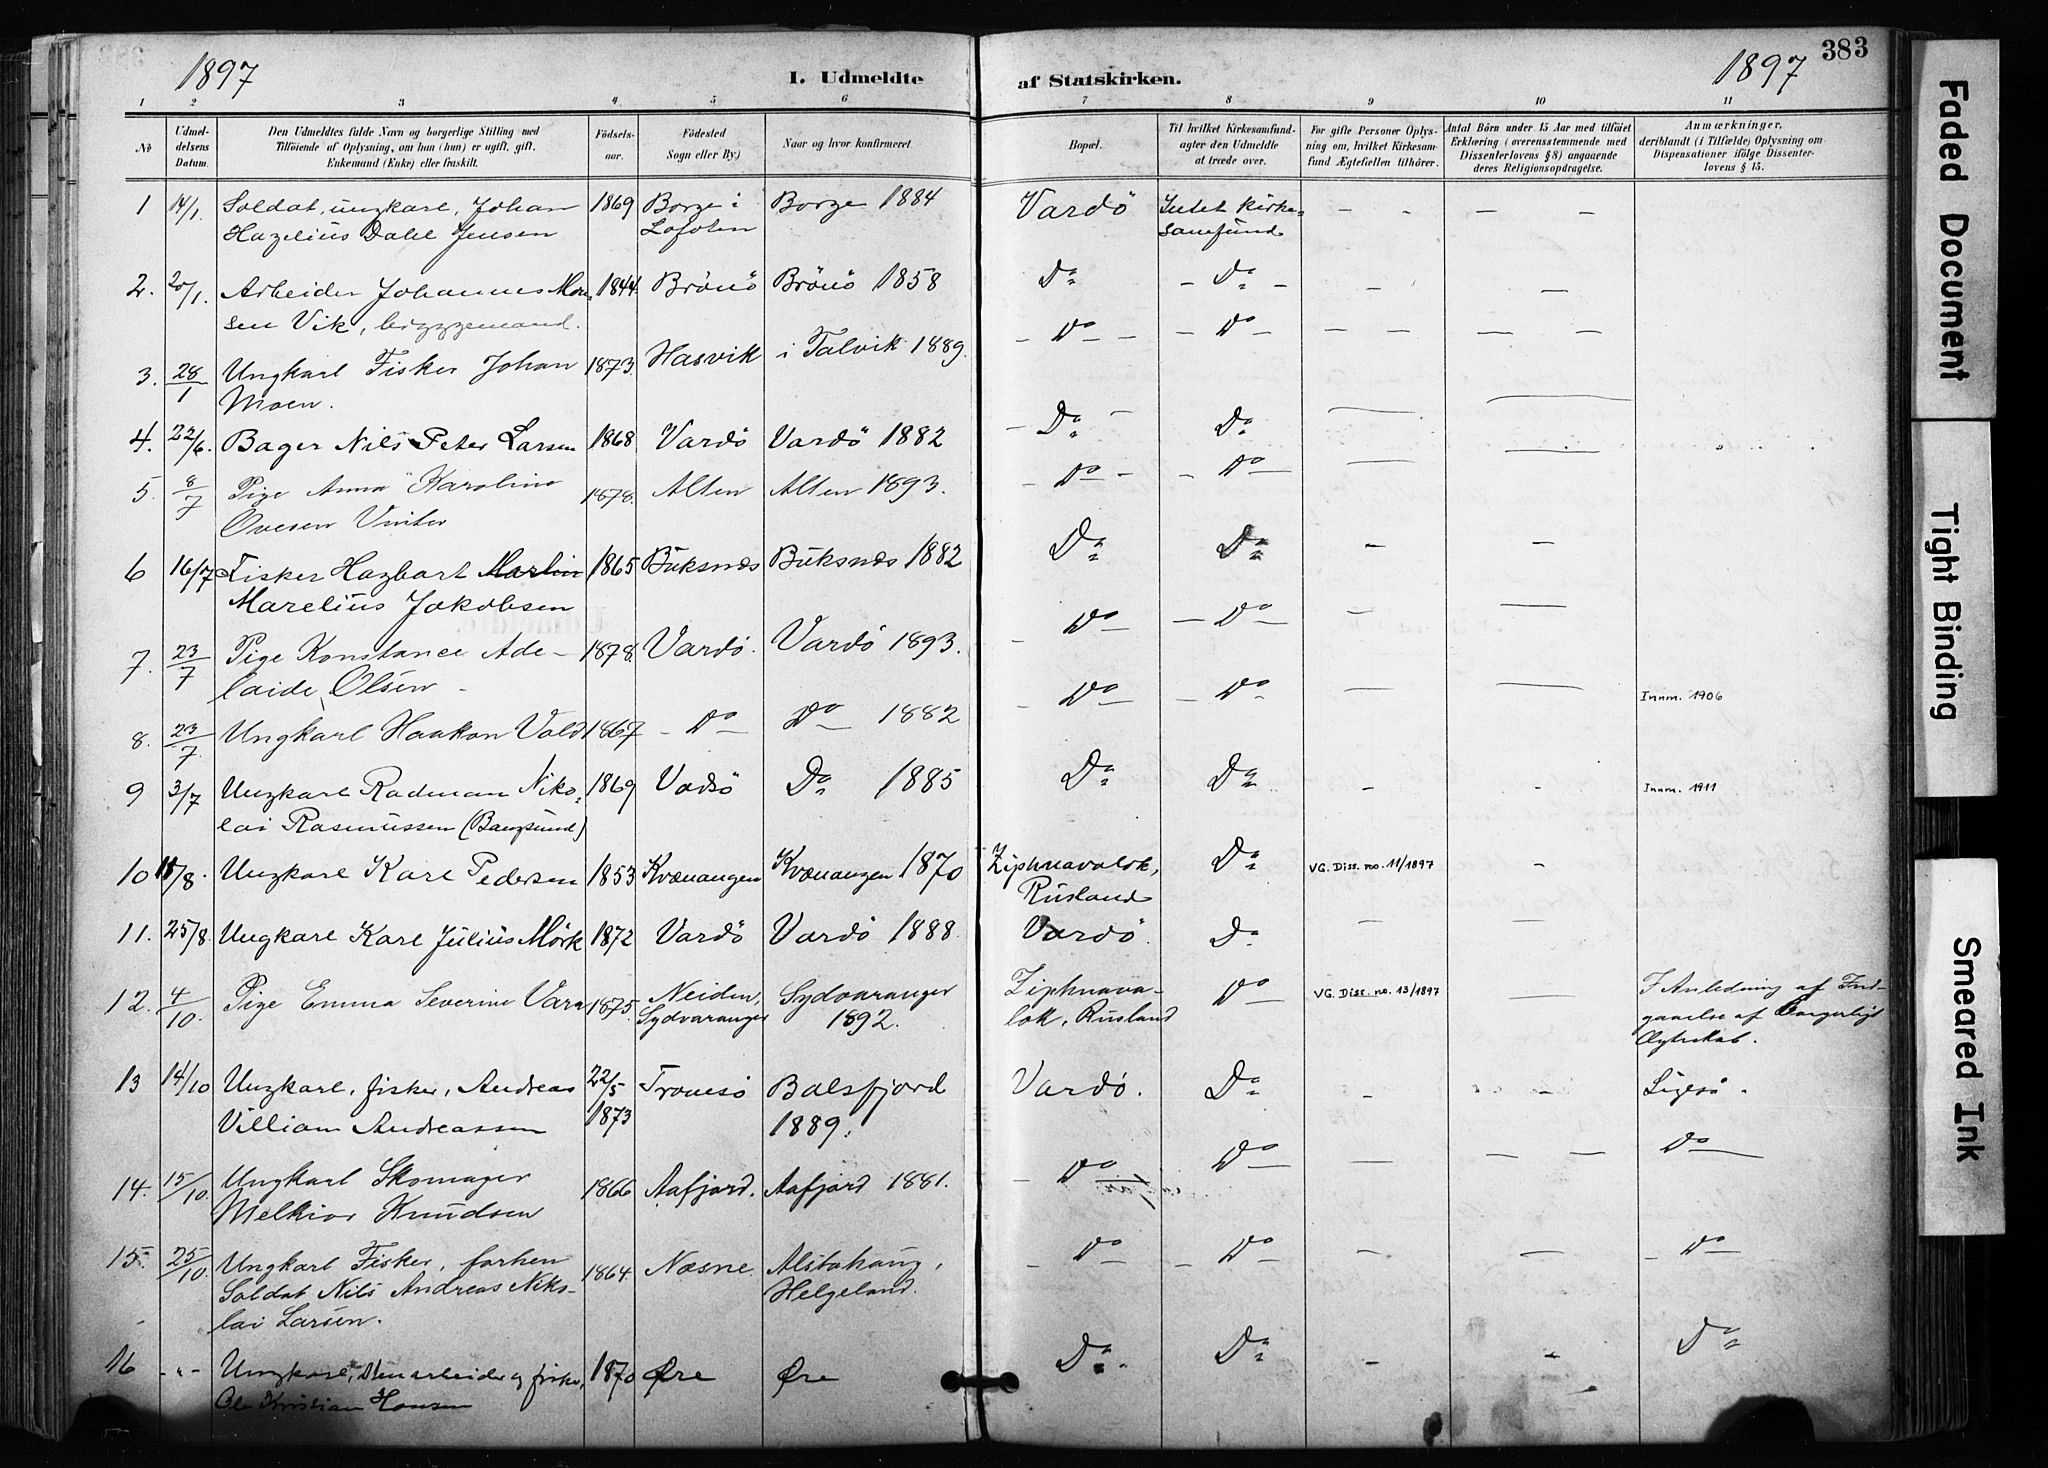 1897 I. Udmeldte af Statskirken. 1897 383
1 2 3 4 5 6 7 8 9 10 11
No Udmeldelsens Datum. Den Udmeldtes fulde Navn og borgerlige Stilling med Tilføiende af Oplysning, om han (hun) er ugift, gift, Enkemand (Enke) eller fraskilt. Fødselsaar. Födested Sogn eller By) Naar og hvor konfirmeret Bopæl. Til hvilket Kirkesamfund agter den Udmeldte at træde over. For gifte Personer Oplysning om, hvilket Kirkesamfund Ægtefællen tilhører. Antal Börn under 15 Aar med tilföiet Erklæring (overensstemmende med Dissenterlovens § 8) angaaende deres Religionsopdragelse. Anmærkninger, deriblandt (i Tilfælde) Oplysning om Dispensationer ifølge Dissenterlovens § 15.
1 14/1. Soldat, ungkarl, Johan 1869 Borge i Borge 1884 Vardö Intet Kirke= - - - -
Hagelius Dahl Jensen Lofoten samfund
2. 20/1. Arbeider Johannes Mon= 1844. Brönö Brönö 1858 Do - Do - - -
sen Vik, byggemand.
3. 28/1 Ungkarl Fisker Johan 1873. Hasvik i Talvik 1889. - Do - - Do - - - - -
Moen.
4. 22/6. Bager Nils Peter Larsen 1868 Vardö Vardö 1882 - Do - Do - -
5. 8/7 Pige Anna Karoline 1878. Alten Alten 1893. - Do - - Do - - -
Ovesen Vinter
6 16/7 Fisker Hagbart Martin 1865 Buksnæs Buksnæs 1882 Do Do - -
Marelius Jakobsen
7. 23/7 Pige Konstance Ade- 1878. Vardö. Vardö 1893. - Do - - Do - - -
laide Olsen -
8. 23/7. Ungkarl Haakon Vold 1867 - Do - Do 1882 - Do - - Do - - - Innm. 1906
9 3/7 Ungkarl Radman Niko= 1869 Vadsö Do 1885 Do Do - - Innm. 1911
lai Rasmussen (Bangsund)
10 18/8. Ungkarl Karl Pedersen 1853 Kvænangen Kvænangen 1870 Ziphnavalok, Do VG. Diss. no. 11/1897 -
Rusland
11. 25/8. Ungkarl Karl Julius Mörk 1872 Vardö Vardö 1888 Vardö. Do - -
12. 4/10. Pige Emma Severine Vara 1875. Neiden, Sydvaranger Ziphnava- Do VG. Diss. no. 13/1897 - I Anledning af Ind-
Sydvaranger 1892. lok, Rusland gaaelse af borgerligt
Ægteskab.
13 14/10 Ungkarl, fisker, Andreas 22/5 Tromsö Balsfjord Vardö. Do - - Ligeså -
Villiam Andreassen 1873 1889.
14. 15/10. Ungkarl Skomager 1866 Aafjord. Aafjord 1881. - Do Do - - - - Do
Melkior Knudsen
15. 25/10. Ungkarl Fisker, forhen 1864. Næsne. Alstahaug, - Do - - Do - - - - Do -
Soldat Nils Andreas Niko- Helgeland.
lai Larsen.
16 - " - Ungkarl, Stenarbeider og fisker, 1870 Øre Øre Do - Do - - Do
Ole Kristian Hansen
Faded Document
Tight Binding
Smeared Ink